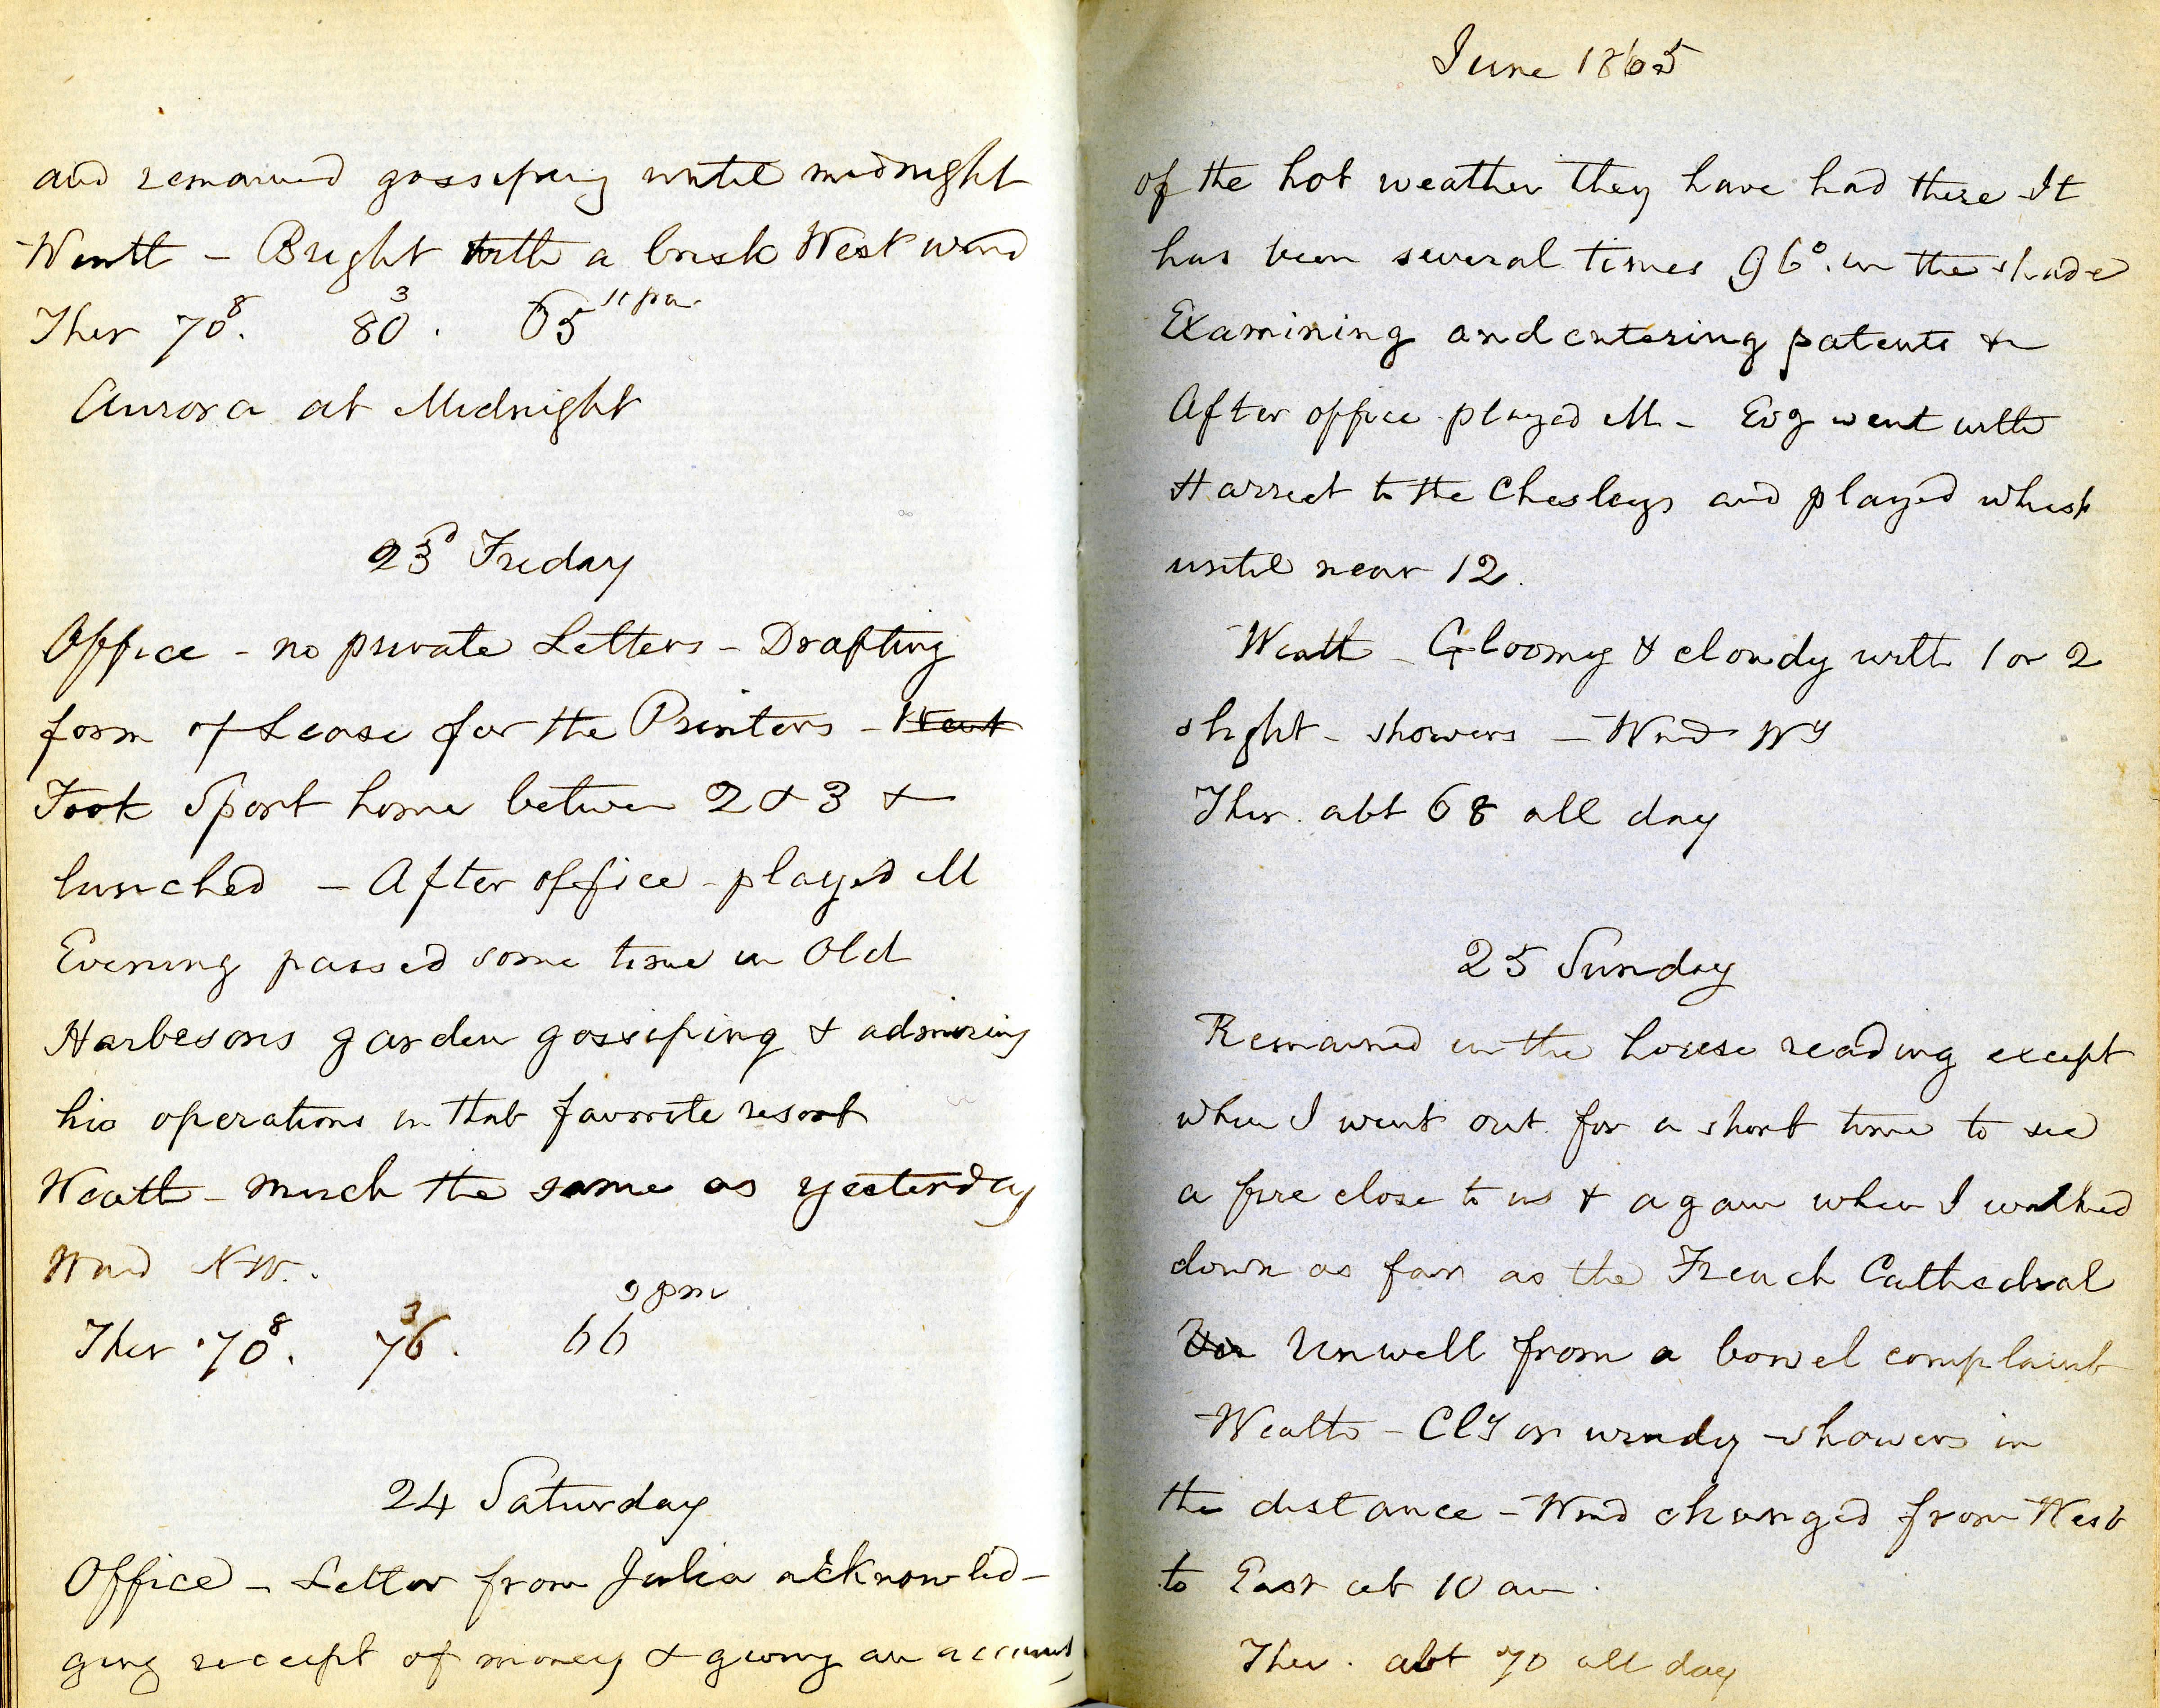 and remained gossiping until midnight
Weath - Bright with a brisk West wind
Ther 70⁸. 80³. 65 11 pm.
Aurora at Midnight
23d Friday
Office - no private Letters - Drafting
form of Lease for the Printers - Went
Took Sport home between 2 & 3 &
lunched - After office - played M
Evening passed some time in Old
Harbesons garden gossiping & admiring
his operations in that favorite resort
Weath - much the same as yesterday
Wind NW.
Ther 70⁸. 76³. 66 9 pm
24 Saturday
Office - Letter from Julia acknowled-
ging receipt of money & giving an account
June 1865
of the hot weather they have had there It
has been several times 96°. in the shade
Examining and entering patents &
After office played M - Evg went with
Harriet to the Chesleys and played whist
until near 12.
Weath - Gloomy & cloudy with 1 or 2
slight - showers - Wind Wy
Ther. abt 68 all day
25 Sunday
Remained in the house reading except
when I went out for a short time to see
a fire close to us & again when I walked
down as far as the French Cathedral
Unwell from a bowel complaint
Weath - Cly or windy - showers in
the distance - Wind changed from West
to East at 10 am.
Ther. abt 70 all day